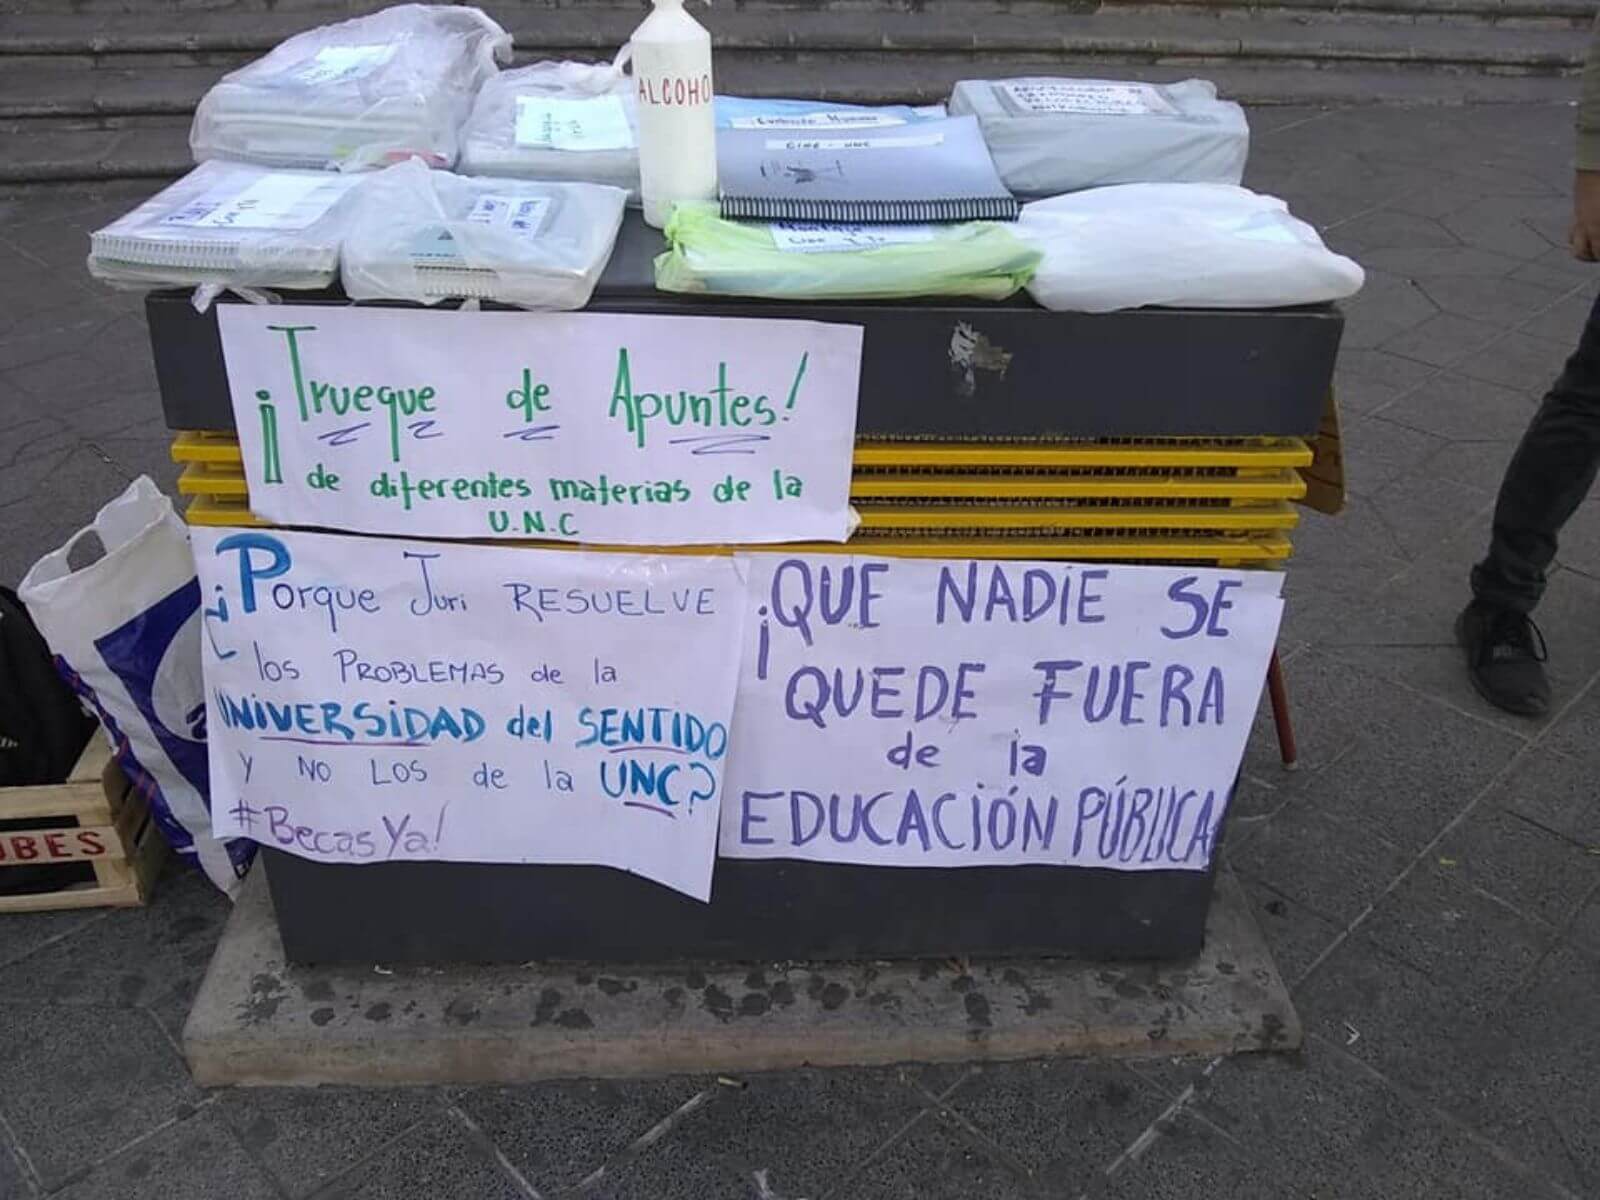 ALCOHO
Evolución Humana
Cine - UNC
Montaje
Cine y Tv
¡Trueque de Apuntes!
de diferentes materias de la
U.N.C
¿Porque Juri RESUELVE
los PROBLEMAS de la
UNIVERSIDAD del SENTIDO
Y NO LOS de la UNC?
#BecasYa!
¡QUE NADIE SE
QUEDE FUERA
de la
EDUCACIÓN PÚBLICA
UBES